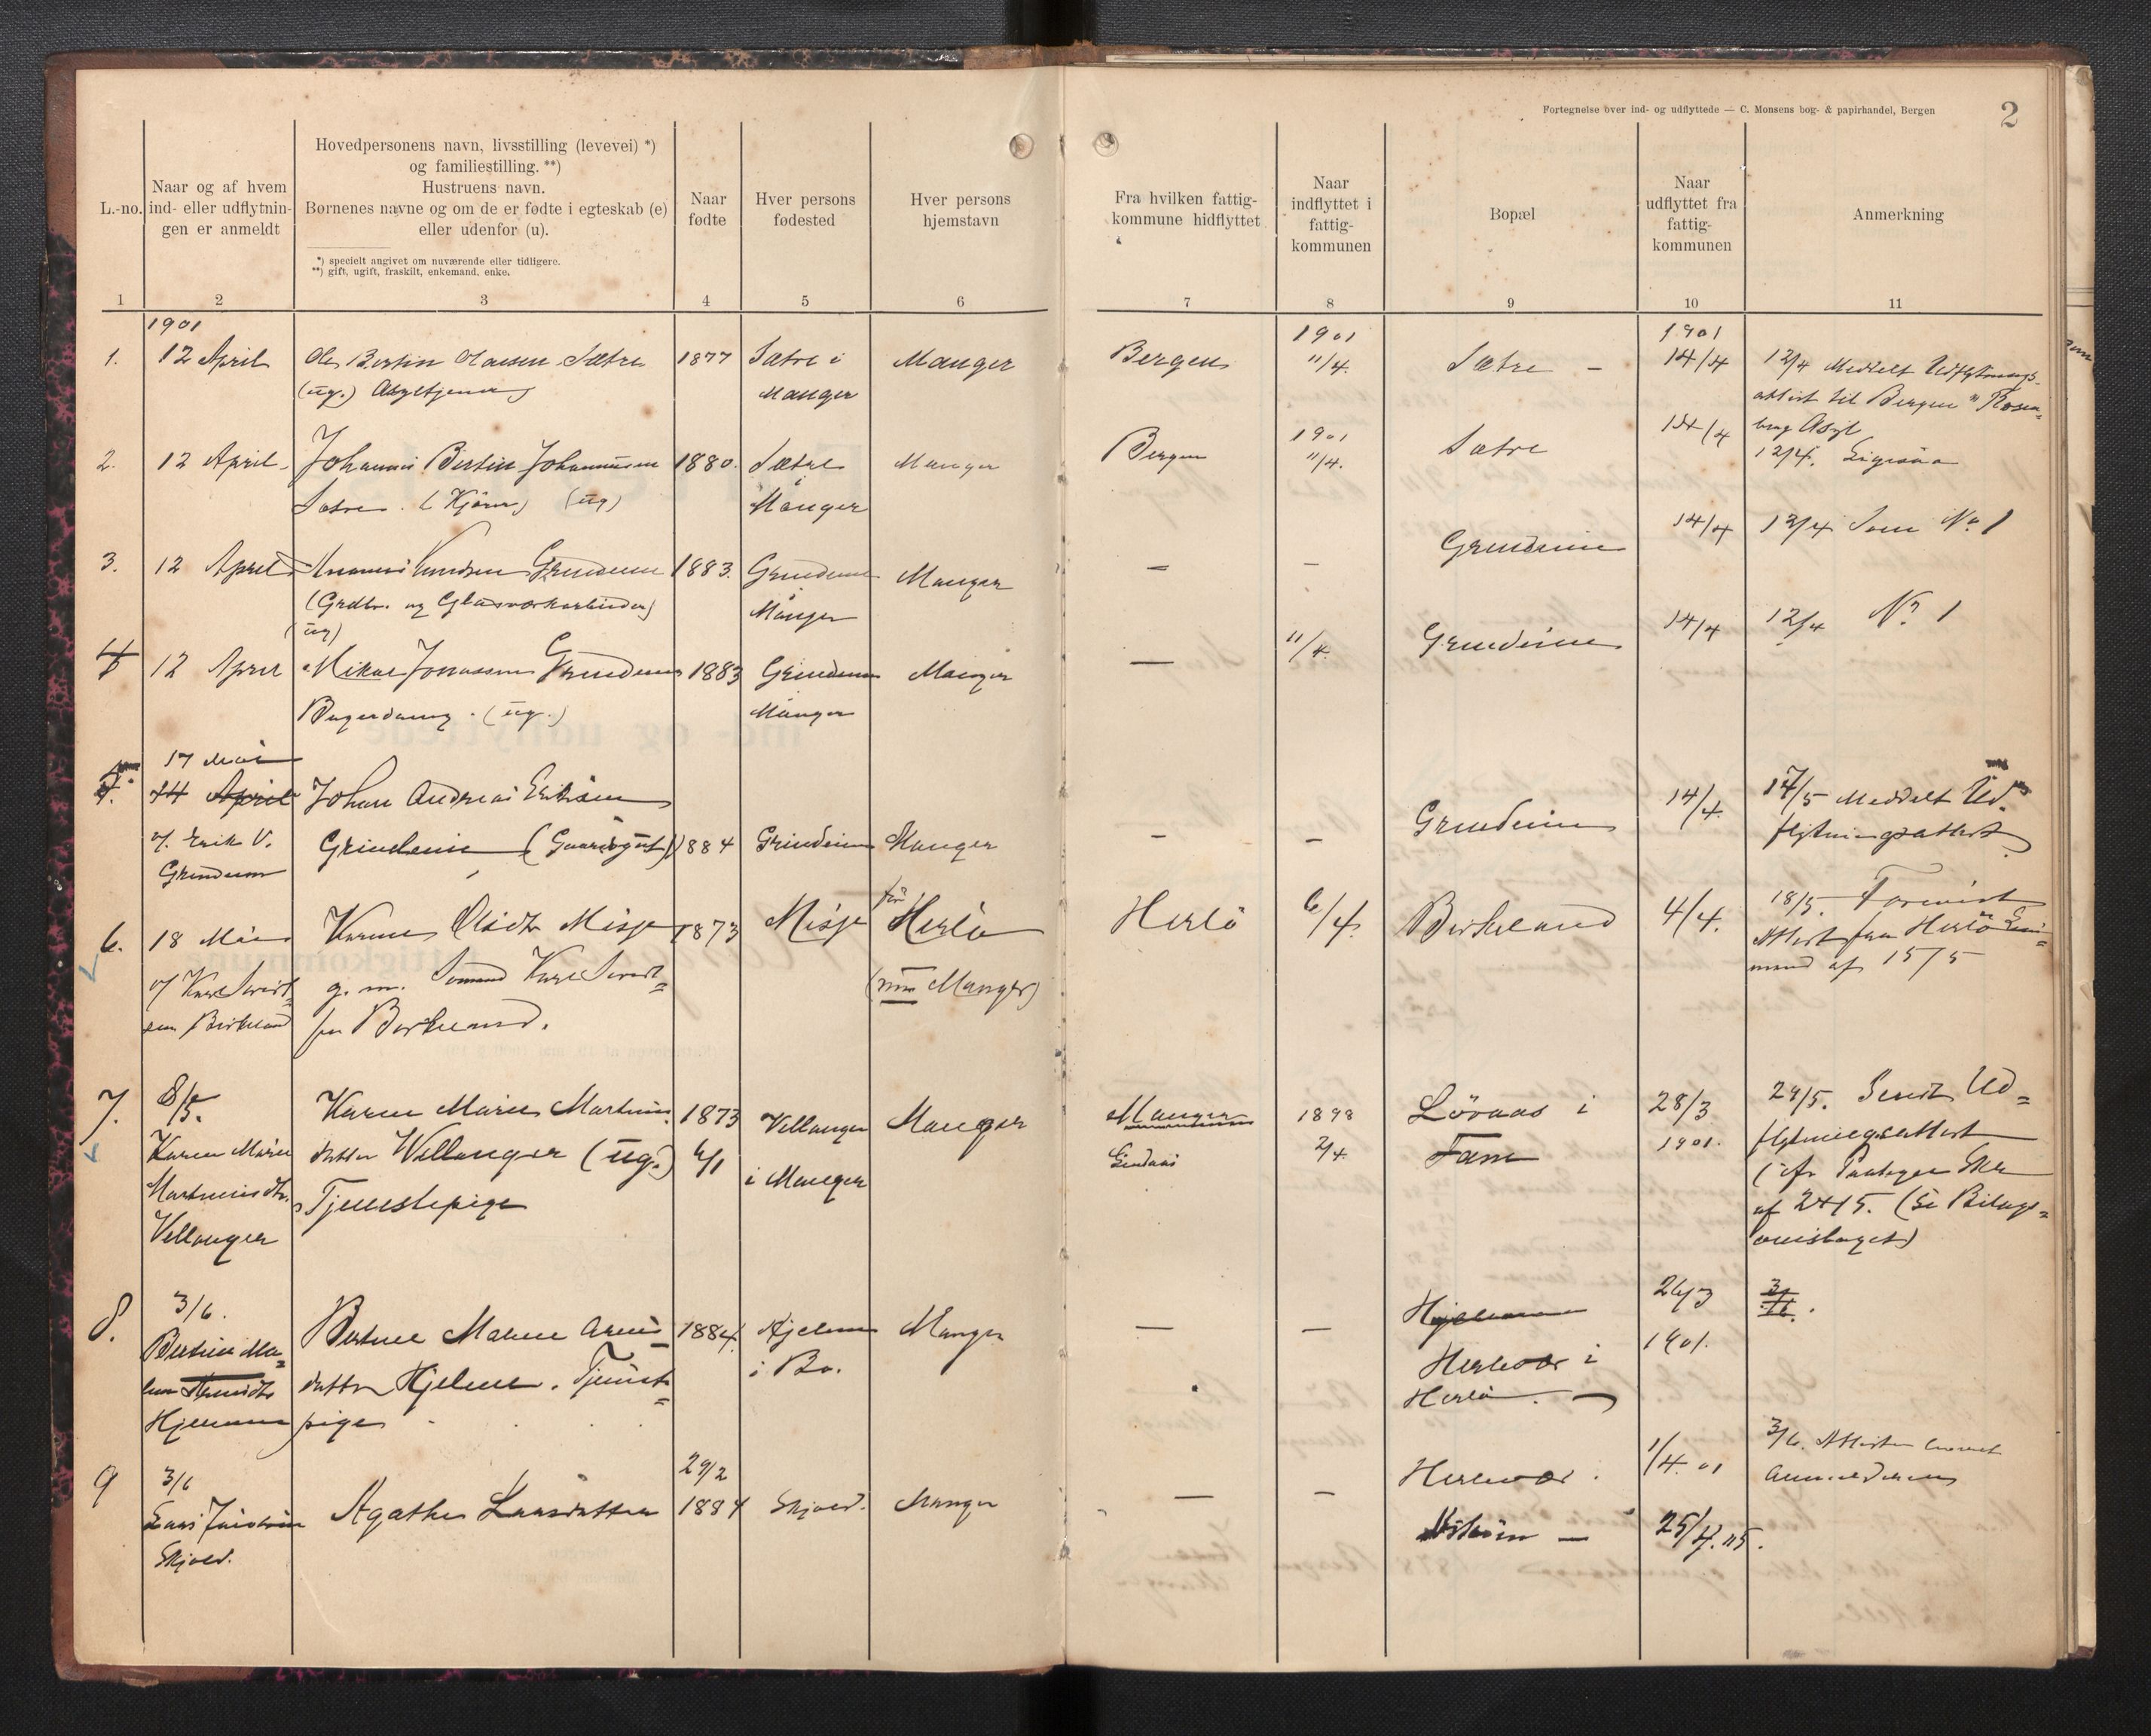 Fortegnelse over ind- og udflyttede — C. Monsens bog- & papirhandel, Bergen
2
L.-no.
Naar og af hvem
ind- eller udflytnin-
gen er anmeldt
Hovedpersonens navn, livsstilling (levevei) *)
og familiestilling. **)
Hustruens navn.
Børnenes navne og om de er fødte i egteskab (e)
eller udenfor (u).
*) specielt angivet om nuværende eller tidligere.
**) gift, ugift, fraskilt, enkemand, enke.
Naar
fødte
Hver persons
fødested
Hver persons
hjemstavn
Fra hvilken fattig-
kommune hidflyttet
Naar
indflyttet i
fattig-
kommunen
Bopæl
Naar
udflyttet fra
fattig-
kommunen
Anmerkning
1 2 3 4 5 6 7 8 9 10 11
1901 1901 1901
1. 12 April Ole Bertin Olaesen Sætre 1877 Sætre i Manger Bergen 11/4. Sætre — 14/4 12/4 Meddelt Udflytnings-
(ug.) Asyltjener Manger attest til Bergen "Rosen-
berg Asyl
2. 12 April Johannes Bertin Johannesen 1880. Sætre Manger Bergen 1901 11/4. Sætre 14/4 12/4. Ligesaa
Sætre. (ug) i Manger
3. 12 April Knudsen Grindeim 1883. Grindeim Manger — — Grindeim 14/4 12/4 Som No. 1
(Grdbr. og Glasværksarbeider) Manger
(ug)
4 12 April Mikal Jonassen Grindeim 1883 Grindeim Manger — 11/4. Grindeim 14/4 12/4 No. 1
(ug.) Manger
17 Mai
14 April Johan Andreas Eriksen 14/4. 17/5 Meddelt Ud-
v/ Erik V. Grindeim (Gaardgut) 1884 Grindeim Manger — — Grindeim flytningsattest
Grindeim
6. 18 Mai Karen Olsdtr Misje 1873 Misje før Herlø Herlø 6/4. Birkeland 4/4. 18/5. Forevist
v/ Karl Sivert- g. m. Sømand Karl Sivert- (nu Manger) Attest fra Herlø
sen Birkeland sen Birkeland. af 15/5
7. 8/5. Karen Marie Martinus- 1873 Vellanger Manger Manger 1898 Løvaas i 28/3 24/5. Sendt Ud-
Karen Marie datter Wellanger (ug.) 4/1 i Manger Lindaas 2/4 Fane 1901. flytningsattest
Martinusdtr. Tjenestepige af 24/5. (Se Bilags-
Vellanger
8. 3/6. Bertine Malene Arnes- 1884. Hjelme Manger — — Hjelme 26/3 3/6.
datter Hjelme. Tjenest- i Bø. Hernvær i 1901.
Hjelme pige Herlø.
9 3/6 29/2 Hernvær. 1/4. 01 3/6. Attesten
Skjold. Agathe Larsdatter 1884 Skjold. Manger — — 25/4. 05. Anmelderen